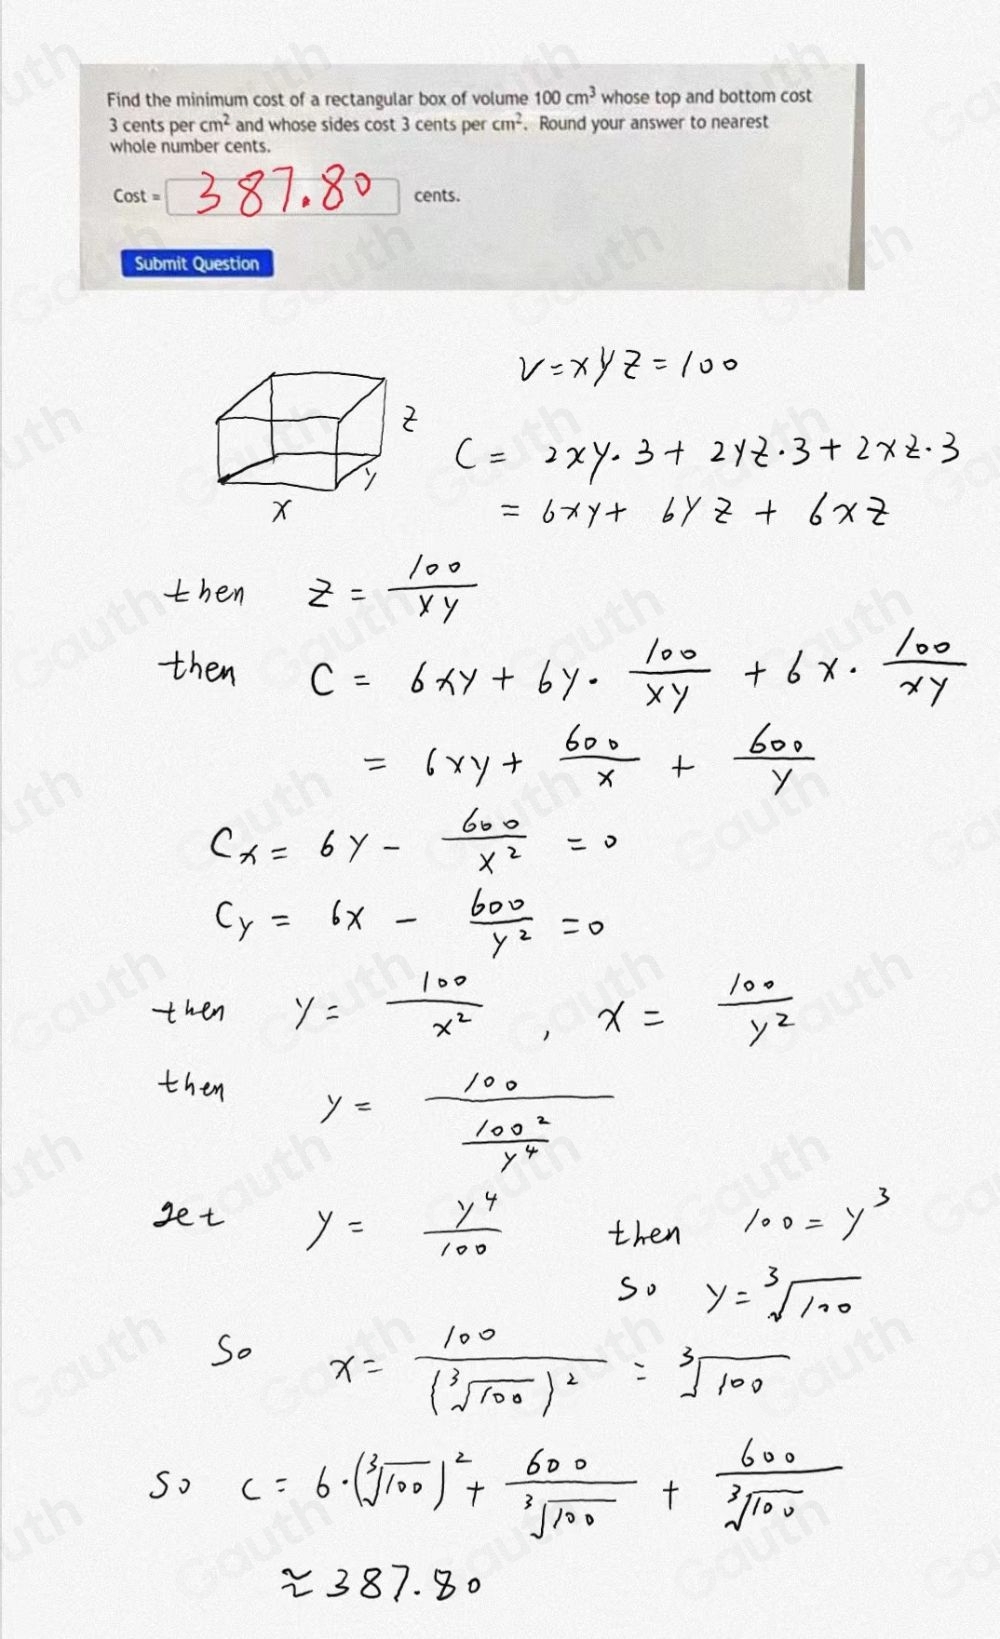 Find the minimum cost of a rectangular box of volume 100 cm³ whose top and bottom cost
3 cents per cm² and whose sides cost 3 cents per cm². Round your answer to nearest
whole number cents.
Cost = 387.80 cents.
Submit Question
V = xyz = 100
z
C = 2xy·3 + 2yz·3 + 2xz·3
y
x
= 6xy + 6yz + 6xz
then z = 100/xy
then C = 6xy + 6y · 100/xy + 6x · 100/xy
= 6xy + 600/x + 600/y
Cx = 6y - 600/x² = 0
Cy = 6x - 600/y² = 0
then y = 100/x² , x = 100/y²
then y = 100/(100²/y⁴)
get y = y⁴/100 then 100 = y³
so y = ³√100
So x = 100/(³√100)² = ³√100
so C = 6·(³√100)² + 600/³√100 + 600/³√100
≈ 387.80
Gauth